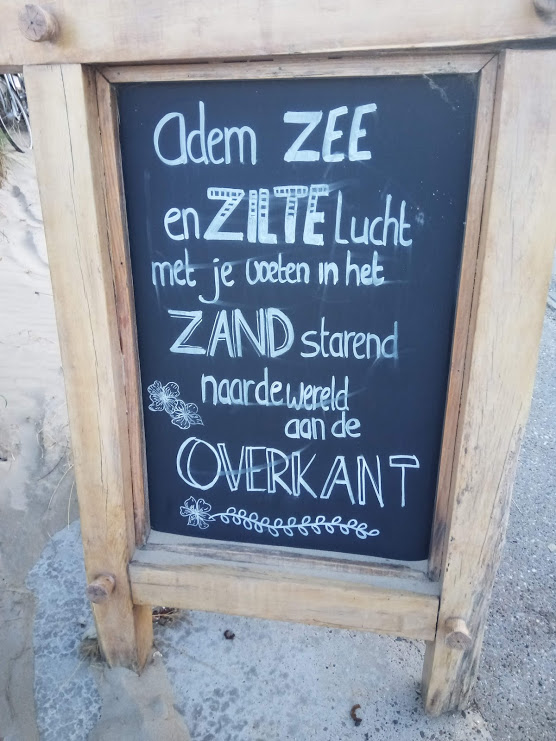 adem ZEE
en ZILTE lucht
met je voeten in het
ZAND starend
naar de wereld
aan de
OVERKANT